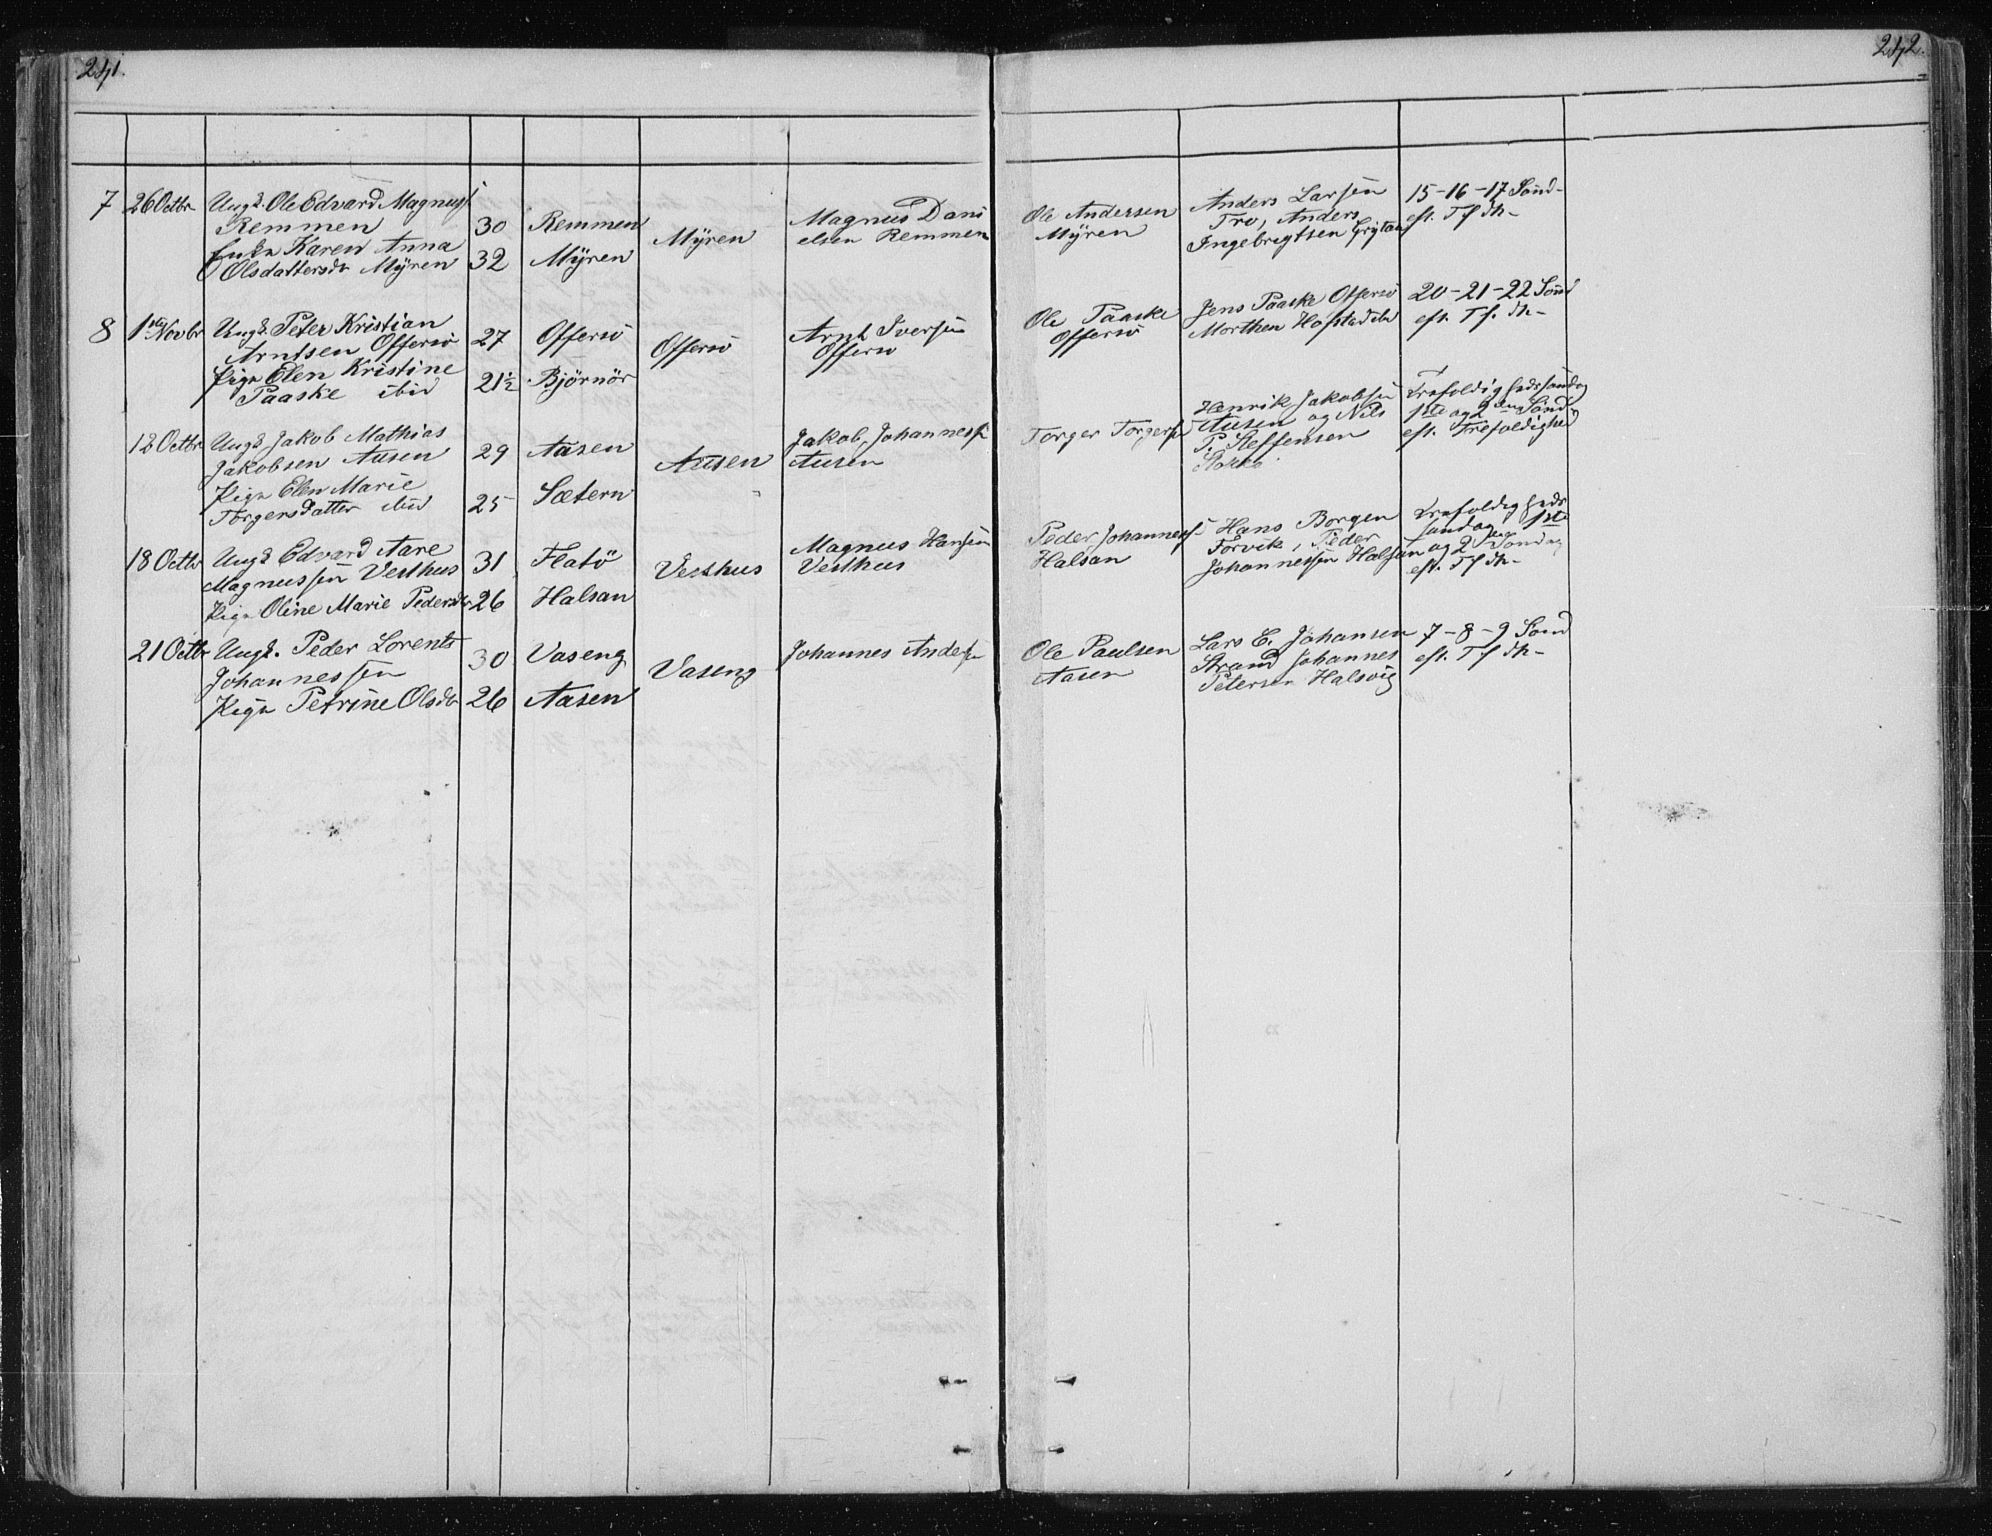 241.
242.
7 26 Octbr Ungk. Ole Edvard Magnuss.
Remmen 30 Remmen Myren Magnus Dani
elsen Remmen Ole Andersen
Myren Anders Larsen
Tro, Anders
Ingebrigtsen Grytan 15-16-17 Sønd-
eft. Tfdh-
Enke Karen Anna
Olsdattersdr Myren 32 Myren
8 1ste Novbr Ungk. Peter Kristian
Arntsen Offersø 27 Offersø Offersø Arnt Iversen
Offersø Ole Paaske
Offersø Jens Paaske Offersø
Morthen Hofstad ibd 20-21-22 Sønd
eft. Tf. dh-
Pige Elen Kristine
Paaske ibid 21½ Bjørnør
12 Octbr Ungk Jakob Mathias
Jakobsen Ausen 29 Aasen Ausen Jakob Johanness.
Ausen Torger Torgers. Henrik Jakobsen
Ausen og Nils
P. Steffensen
Stokkø Trefoldighedssøndag
1ste og 2den Sønd
eft. Trefoldighed
Pige Elen Marie
Torgersdatter ibid 25 Sætern
18 Octbr Ungk Edvard Aare
Magnussen Vesthus 31 Flatö Vesthus Magnus Hansen
Vesthus Peder Johanness.
Halsan Hans Borgen
Torvik, Peder
Johannessen Halsan Trefoldigheds
søndag 1ste
og 2den Søndag
eft. Tfdh-
Pige Oline Marie Pedersdr 26 Halsan
21 Octbr Ungk. Peder Lorents
Johannessen 30 Vaseng Vaseng Johannes Anders. Ole Paulsen
Aasen Lars E. Johansen
Strand Johannes
Petersen Halsvig 7-8-9 Sønd
eft. Tfdh-
Pige Petrine Olsdr 26 Aasen